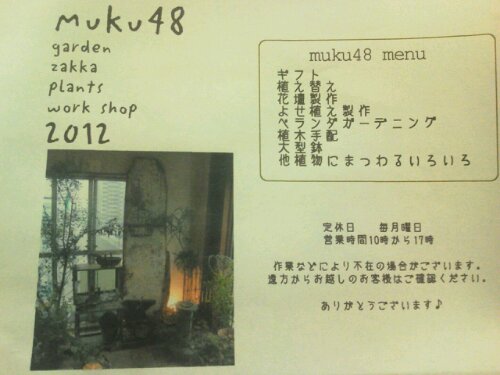 muku48
garden
zakka
plants
work shop
2012
muku48 menu
ギフト
植え替え
花壇製作
よせ植え製作
ベランダガーデニング
植木手配
大型鉢
他植物にまつわるいろいろ
定休日 毎月曜日
営業時間10時から17時
作業などにより不在の場合がございます。
遠方からお越しのお客様はご確認ください。
ありがとうございます♪